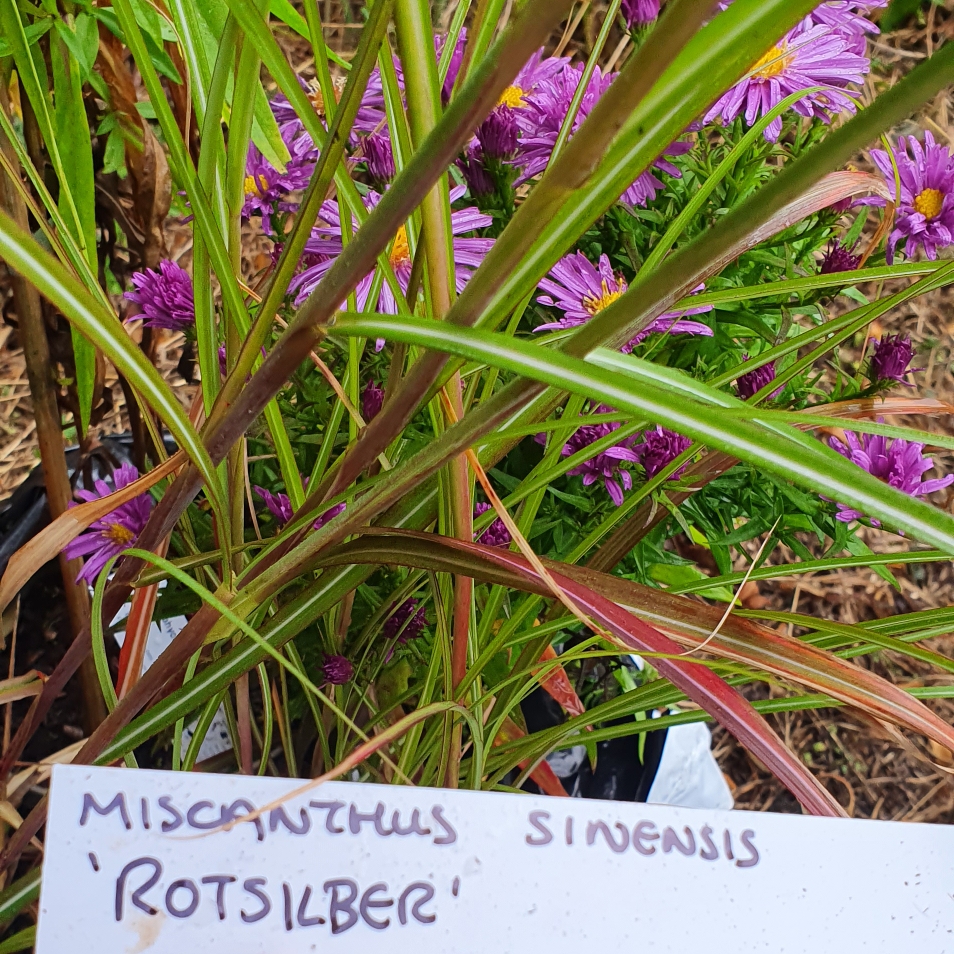 MISCANTHUS SINENSIS
'ROTSILBER'